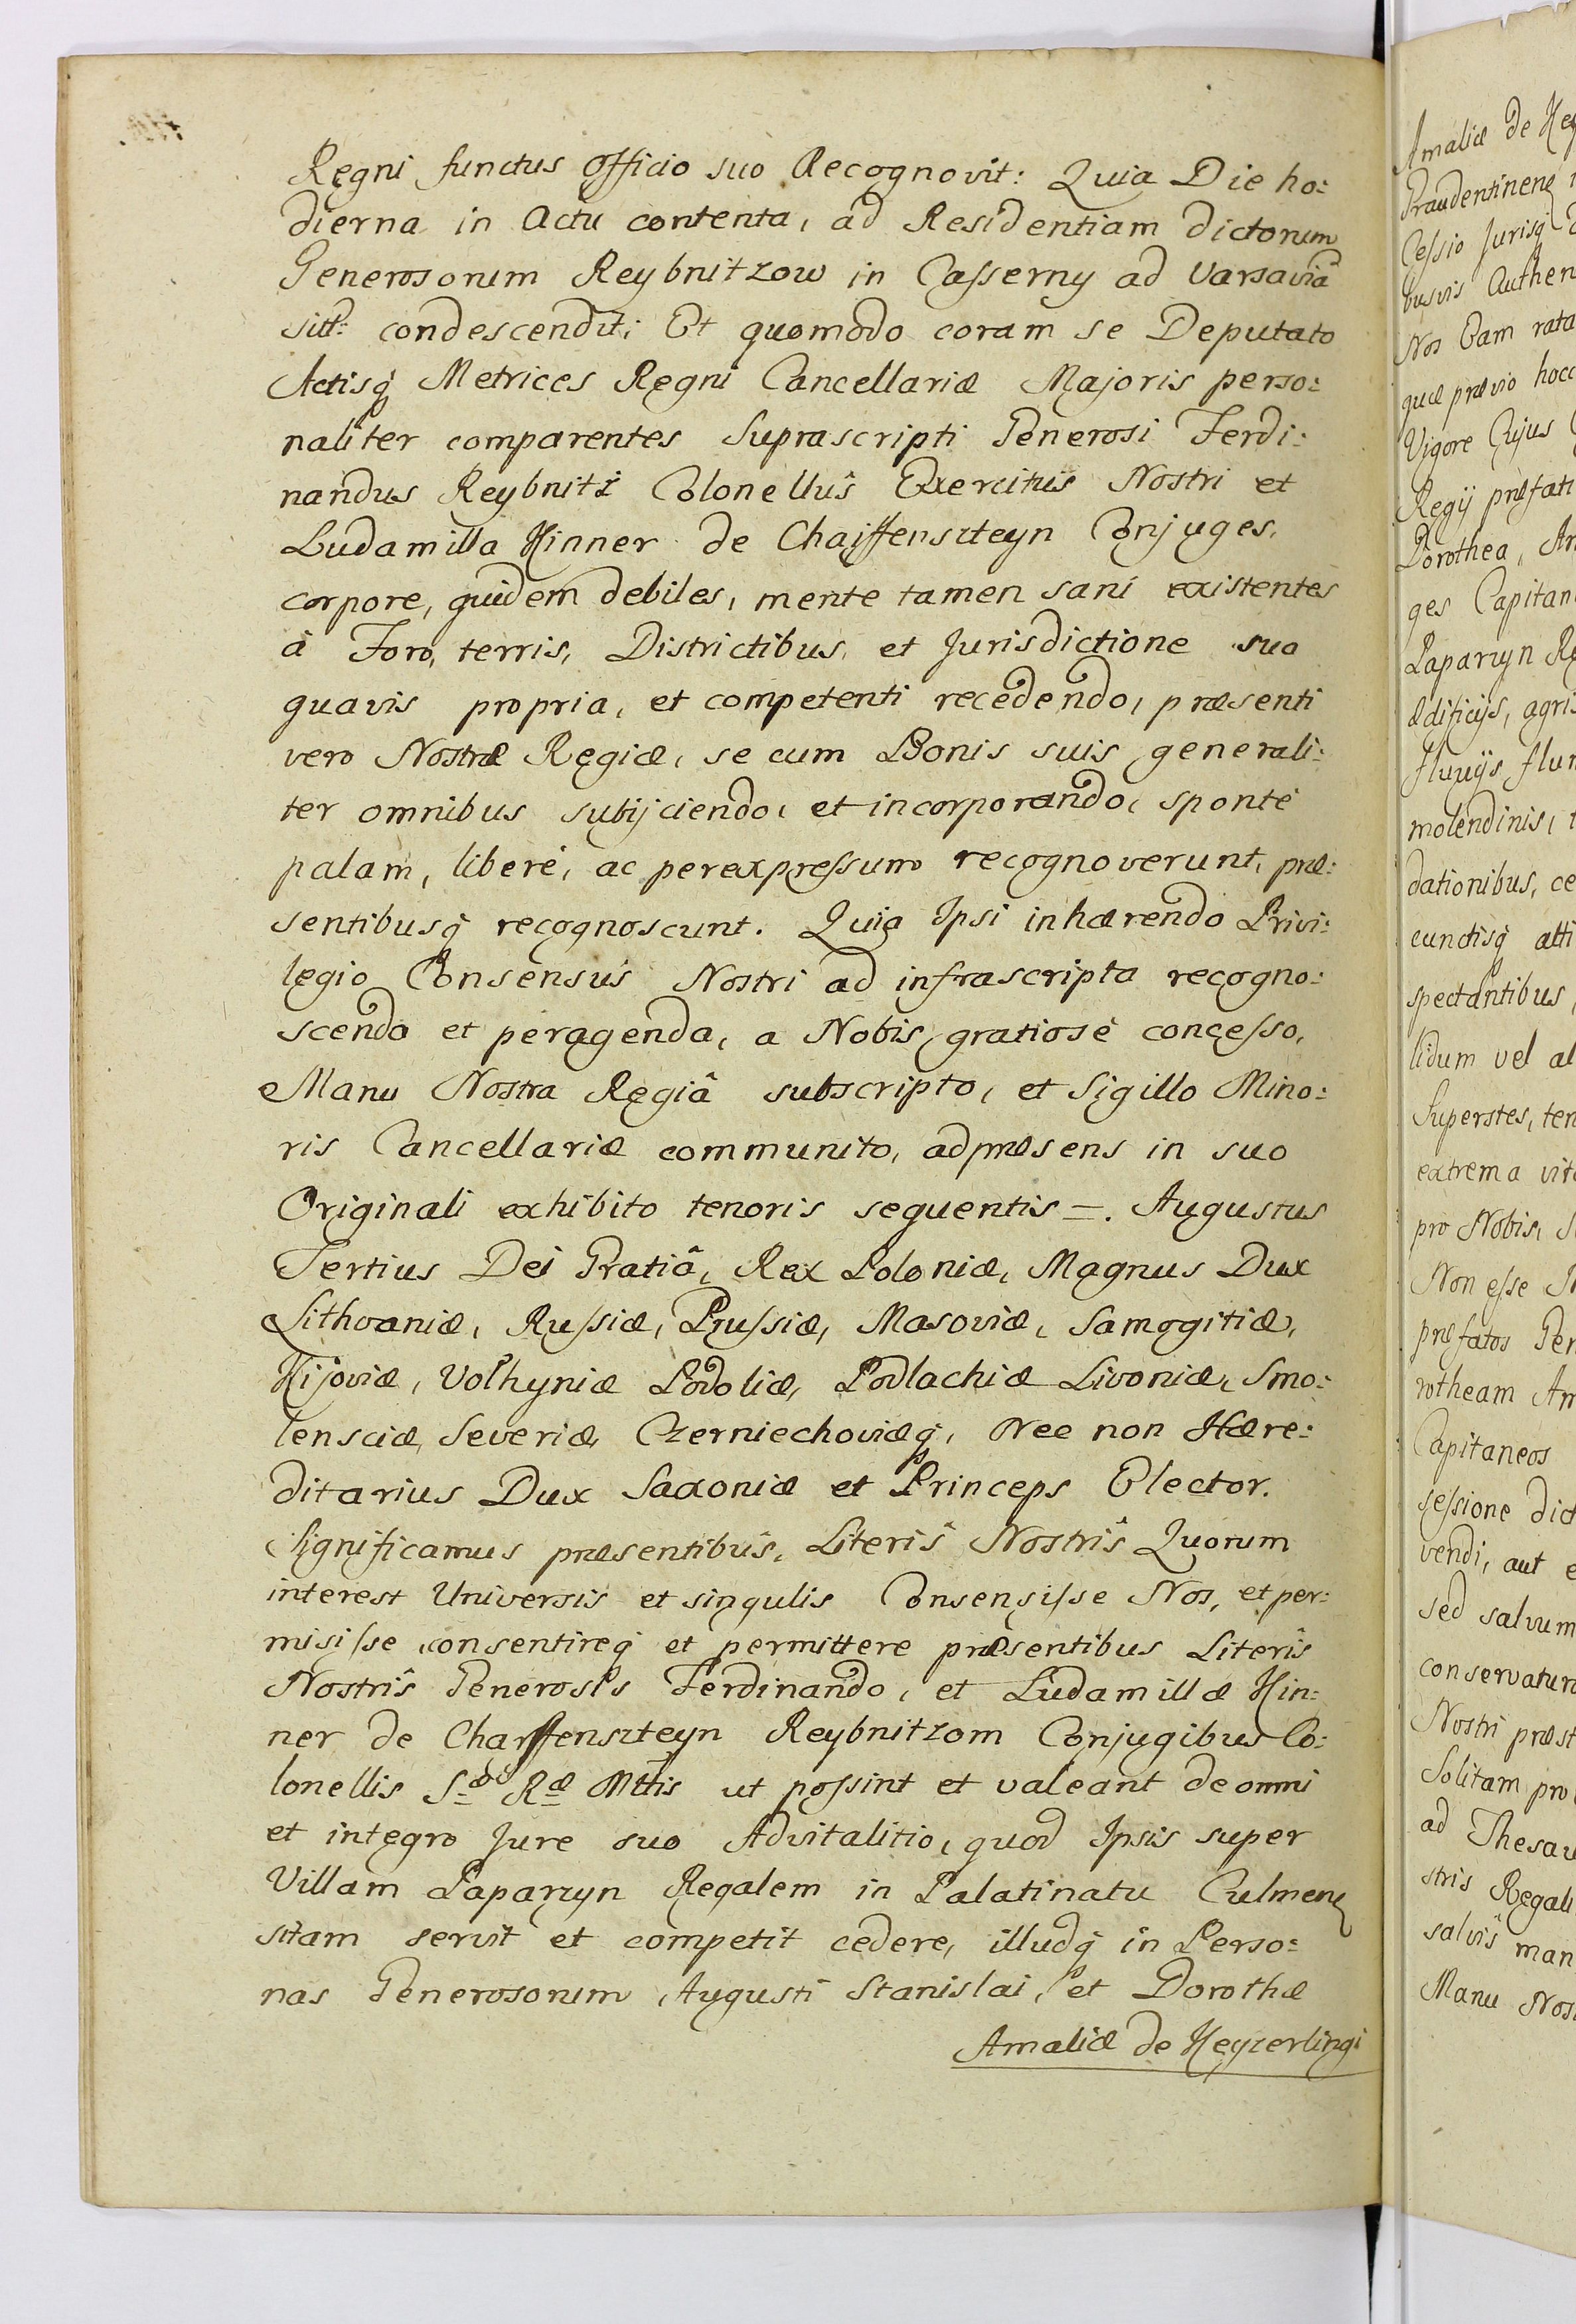 Regni functus Officio suo Recognovit: Quia Die ho:
dierna in Actu contenta, ad Residentiam dictorum
Generosorum Reybnitzow in Casserny ad Varsaviã
sitt: condescendit; Et quomodo coram se Deputato
Actisq́ Metrices Regni Cancellariæ Majoris perso:
naliter comparentes Suprascripti Generosi Ferdi:
nandus Reybnitz Colonellus Exercitus Nostri et
Ludamilla Hinner de Chaiffenszteyn Conjuges,
corpore, quidem debiles, mente tamen sani existentes
à Foro, terris, Districtibus, et Jurisdictione sua
quavis propria, et competenti recedendo, præsenti
vero Nostræ Regiæ, se cum Bonis suis generali:
ter omnibus subijciendo, et incorporando, sponte
palam, liberè, ac perexpressum recognoverunt, præ:
sentibusq́ recognoscunt. Quia Ipsi inhærendo Privi:
legio Consensus Nostri ad infrascripta recogno:
scenda et peragenda, a Nobis gratiosè concesso,
Manu Nostra Regiâ subscripto, et Sigillo Mino:
ris Cancellariæ communito, adpræsens in suo
Originali exhibito tenoris sequentis =. Augustus
Tertius Dei Gratiâ, Rex Poloniæ, Magnus Dux
Lithvaniæ, Russiæ, Prussiæ, Masoviæ, Samogitiæ,
Kijoviæ, Volhyniæ Podoliæ, Podlachiæ Livoniæ, Smo:
lensciæ, Severiæ, Czerniechoviæq́, Nec non Hære:
ditarius Dux Saxoniæ et Princeps Elector.
Significamus præsentibus, Literis Nostris Quorum
interest Universis et singulis Consensisse Nos, et per:
misisse consentireq́ et permittere præsentibus Literis
Nostris Generosis Ferdinando, et Ludamillæ Hin:
ner de Charffenszteyn Reybnitzom Conjugibus Co:
lonellis Sæ Ræ Mttis ut possint et valeant de omni
et integro Jure suo Advitalitio, quod Ipsis super
Villam Paparzyn Regalem in Palatinatu Culmenȝ
sitam servit et competit cedere, illudq́ in Perso:
nas Generosorum Augusti Stanislai, et Dorothæ
Amaliæ de Keyzerlingi
Amaliæ de Key
Cessio Jurisq́
busvis Authen
Nos Eam rata
quæ prævio hocc
Vigore Cujus
Regij præfati
Dorothea, Am
ges Capitan
Paparzyn Re
ædificijs, agris
fluvijs flum
molendinis,
dationibus, ce
cunctisq́ atti
spectantibus,
lidum vel al
Superstes, ten
extrema vitæ
pro Nobis, S
Non esse
præfatos Gen
rotheam Am
Capitaneos
sessione dict
vendi, aut e
sed salvum
conservaturo
Nostri præst
Solitam pro
ad Thesau
stris Regali
salvis man
Manu Nos